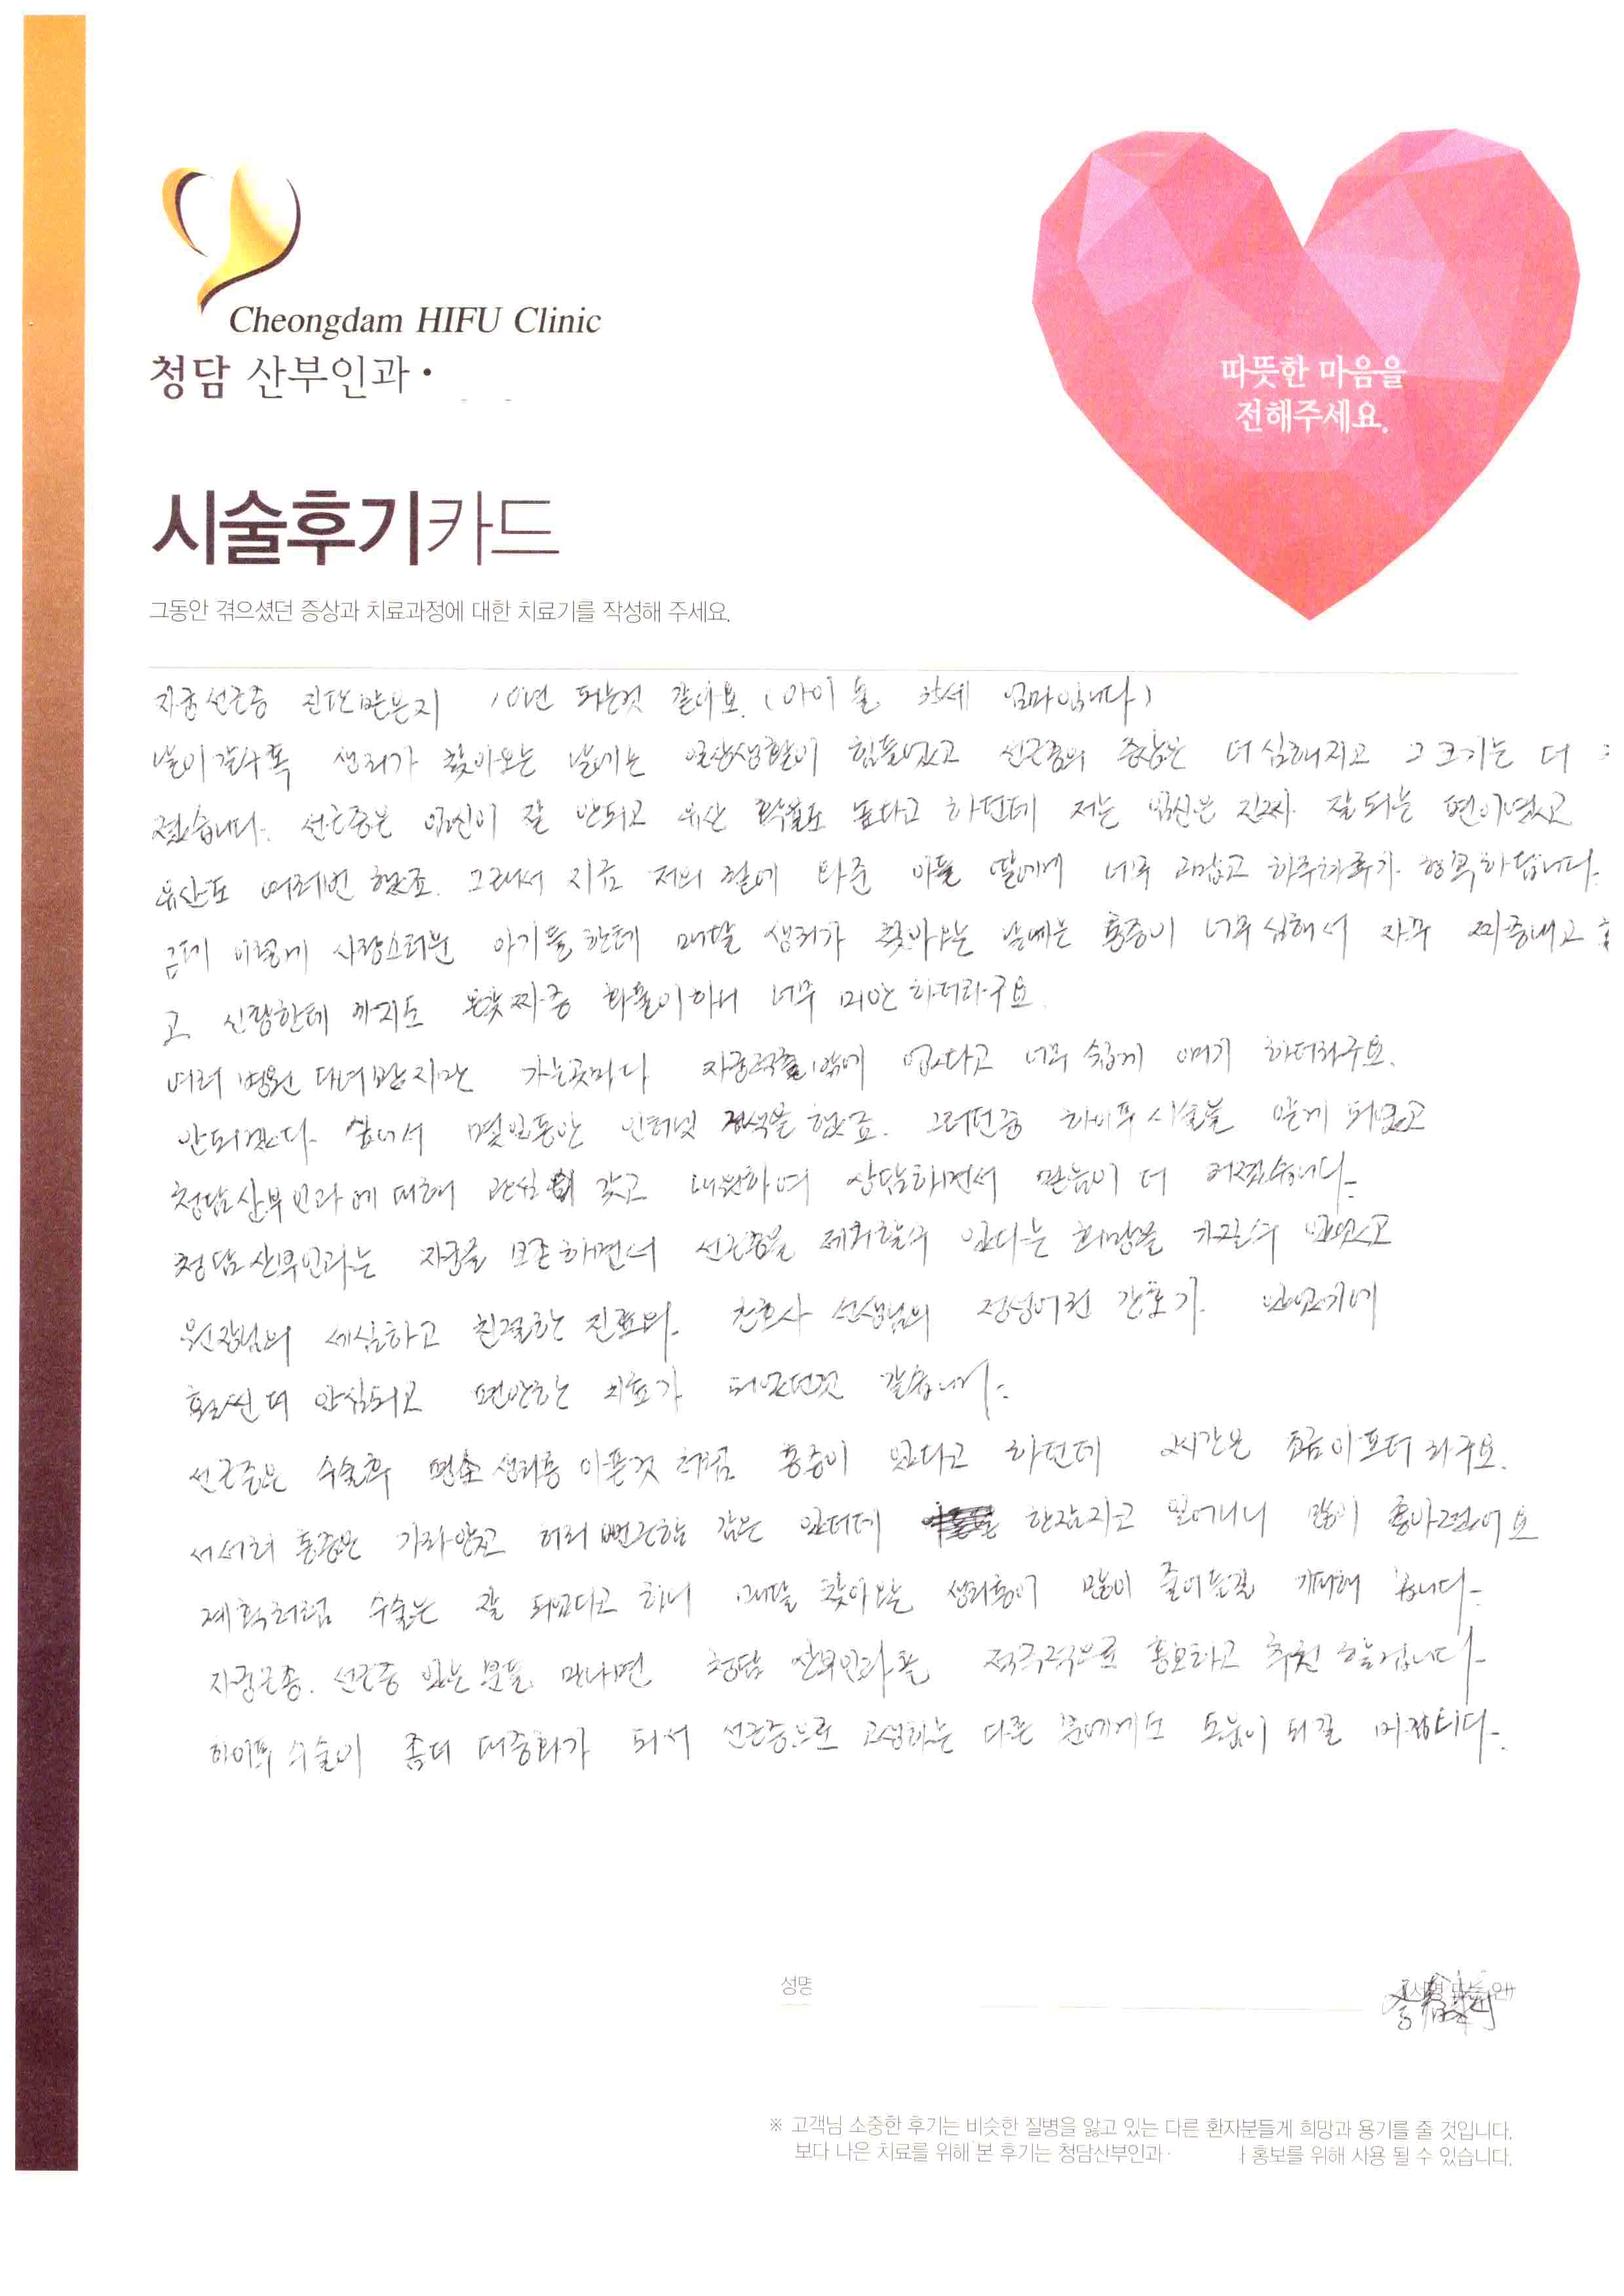 Cheongdam HIFU Clinic
청담 산부인과·
따뜻한 마음을
전해주세요.
시술후기카드
그동안 겪으셨던 증상과 치료과정에 대한 치료기를 작성해 주세요.
자궁선근증 진단받은지 10년 되는것 같아요. (아이 둘, 35세 엄마입니다)
날이갈수록 생리가 찾아오는 날에는 일상생활이 힘들었고 선근증의 증상은 더 심해지고 그 크기는 더
졌습니다. 선근증은 임신이 잘 안되고 유산 확률도 높다고 하던데 저는 임신은 진짜 잘되는 편이였고
유산도 여러번 했죠. 그래서 지금 저의 곁에 와준 아들 딸에게 너무 고맙고 하루하루가 행복하답니다.
근데 이렇게 사랑스러운 아기들한테 매달 생리가 찾아오는 날에는 통증이 너무 심해서 자꾸 짜증내고
고 신랑한테 까지도 온갖짜증 화풀이하니 너무 미안하더라구요.
여러 병원 다녀봤지만 가는곳마다 자궁적출밖에 없다고 너무 쉽게 얘기 하더라구요.
안되겠다 싶어서 몇일동안 인터넷 검색을 했죠. 그러던중 하이푸 시술을 알게 되었고
청담산부인과에 대해 관심 갖고 내원하여 상담하면서 믿음이 더 커졌습니다.
청담산부인과는 자궁을 보존하면서 선근증을 제거할수 있다는 희망을 가질수 있었고
원장님의 세심하고 친절한 진료와 간호사 선생님의 정성어린 간호가 있었기에
훨씬 더 안심되고 편안한 치료가 되었던것 같습니다.
선근증은 수술후 평소 생리통 아픈것 처럼 통증이 있다고 하던데 2시간은 조금아프더라구요.
서서히 통증은 가라앉고 허리 뻐근함 감은 있던데 한잠자고 일어나니 많이 좋아졌어요
계획처럼 수술은 잘 되었다고 하니 매달 찾아오는 생리통이 많이 줄어들길 기대해 봅니다.
자궁근종, 선근증 있는 분들 만나면 청담 산부인과를 적극적으로 홍보하고 추천 하늘겁니다.
하이푸 수술이 좀더 대중화가 되서 선근증으로 고생하는 다른 분에게도 도움이 되길 바랍니다.
성명
※ 고객님 소중한 후기는 비슷한 질병을 앓고 있는 다른 환자분들께 희망과 용기를 줄 것입니다.
보다 나은 치료를 위해 본 후기는 청담산부인과· 홍보를 위해 사용 될 수 있습니다.